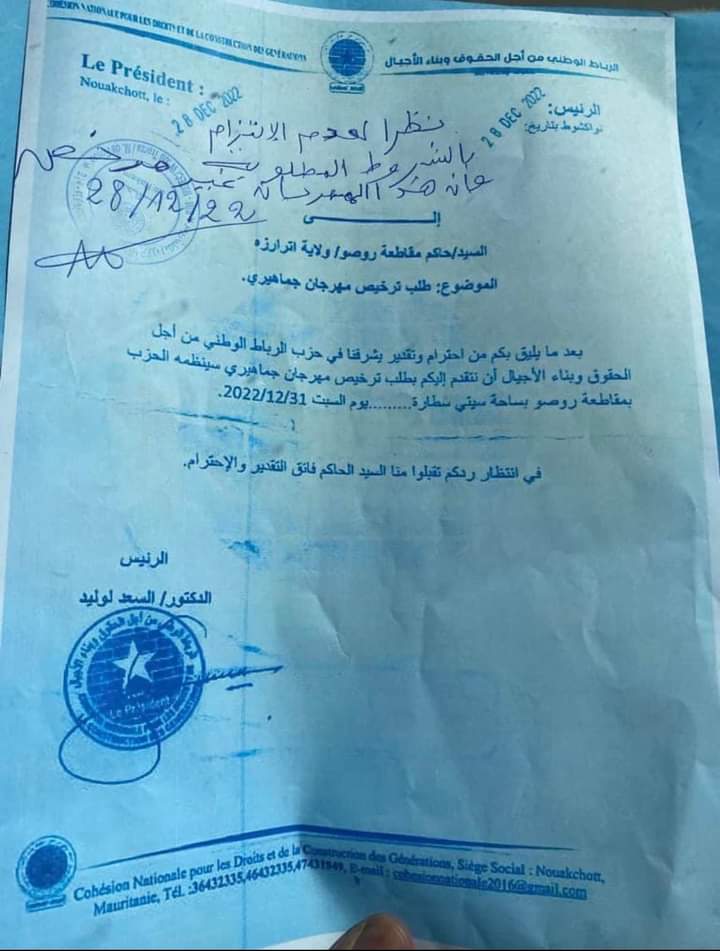 COHÉSION NATIONALE POUR LES DROITS ET DE LA CONSTRUCTION DES GÉNÉRATIONS
الرباط الوطني من أجل الحقوق وبناء الأجيال
Le Président :
Nouakchott, le :
28 DEC 2022
الرئيس:
نواكشوط بتاريخ:
28 DEC 2022
نظرا لعدم الالتزام
بالشروط المطلوبة
فإن هذا المهرجان غير مرخص
28/12/22
إلـــى
السيد/حاكم مقاطعة روصو/ ولاية اترارزه
الموضوع: طلب ترخيص مهرجان جماهيري.
بعد ما يليق بكم من احترام وتقدير يشرفنا في حزب الرباط الوطني من أجل
الحقوق وبناء الأجيال أن نتقدم إليكم بطلب ترخيص مهرجان جماهيري سينظمه الحزب
بمقاطعة روصو بساحة سيتي سطارة.........يوم السبت 2022/12/31.
في انتظار ردكم تقبلوا منا السيد الحاكم فائق التقدير والإحترام.
الرئيس
الدكتور/ السعد لوليد
Le Président
Cohésion Nationale pour les Droits et de la Construction des Générations, Siège Social : Nouakchott,
Mauritanie, Tél. :36432335,46432335,47431949, E-mail : cohesionnationale2016@gmail.com